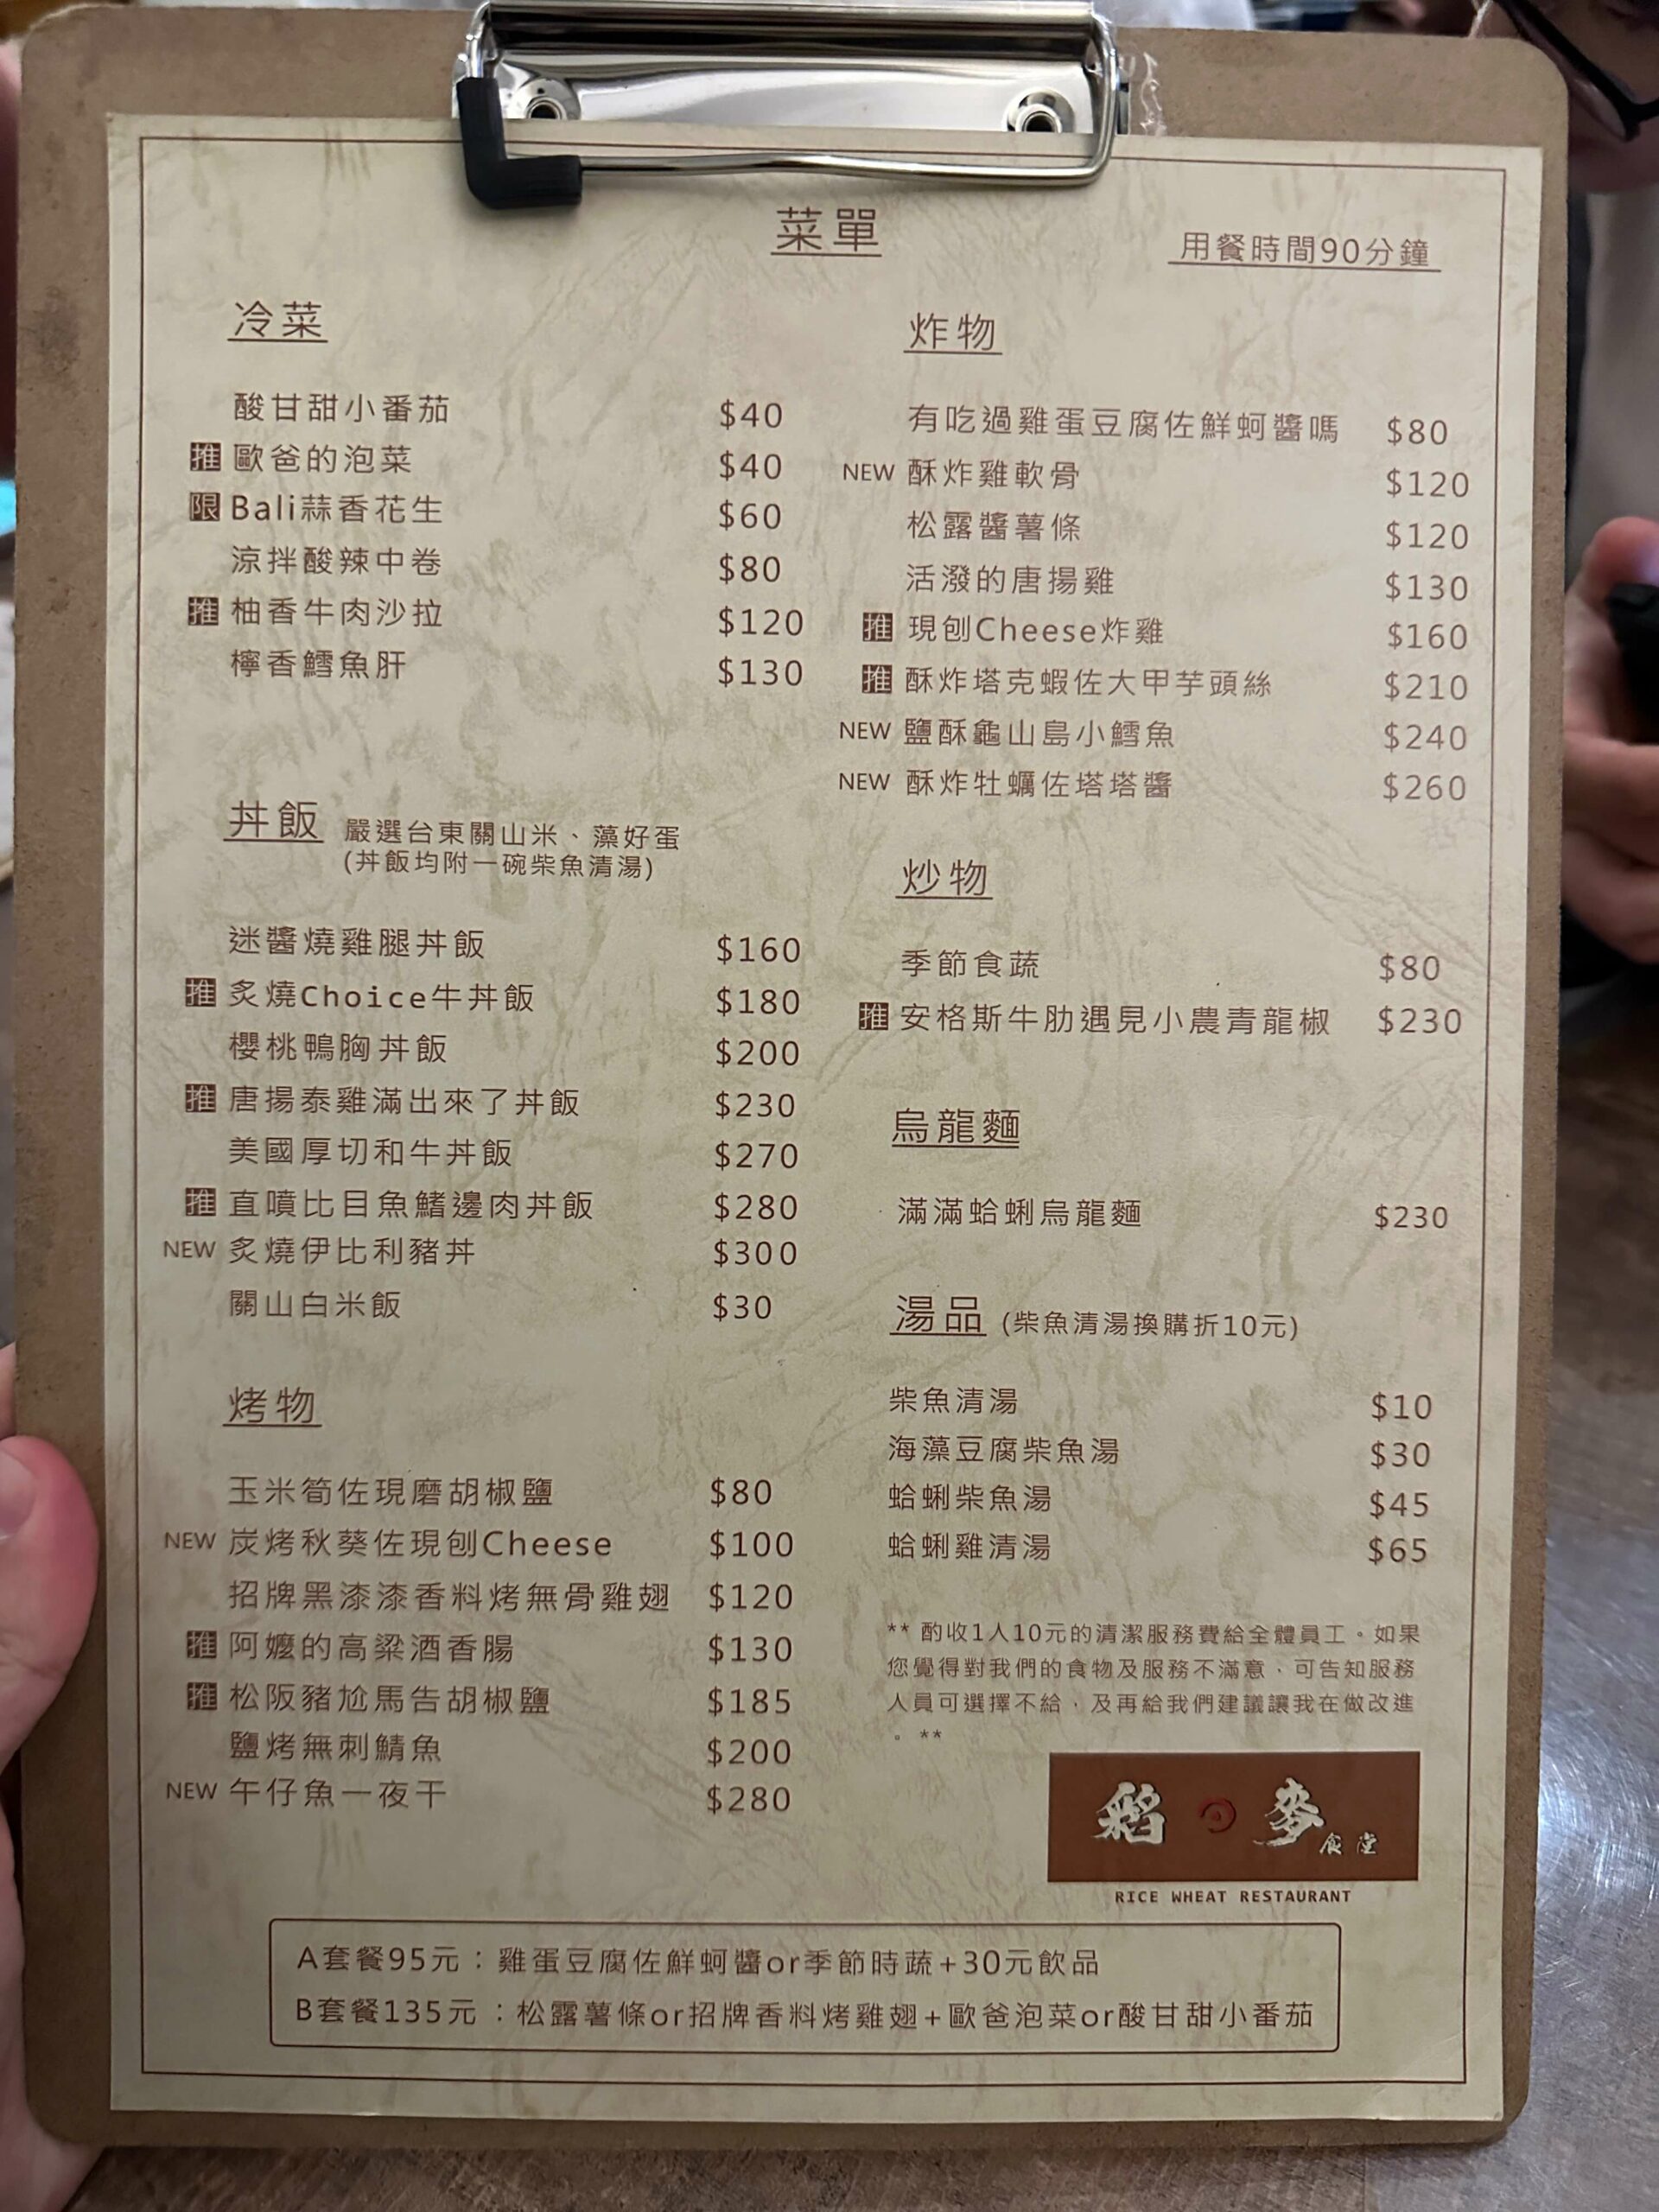 菜單
用餐時間90分鐘
冷菜
酸甘甜小番茄 $40
推 歐爸的泡菜 $40
限 Bali蒜香花生 $60
涼拌酸辣中卷 $80
推 柚香牛肉沙拉 $120
檸香鱈魚肝 $130
丼飯 嚴選台東關山米、藻好蛋
(丼飯均附一碗柴魚清湯)
迷醬燒雞腿丼飯 $160
推 炙燒Choice牛丼飯 $180
櫻桃鴨胸丼飯 $200
推 唐揚泰雞滿出來了丼飯 $230
美國厚切和牛丼飯 $270
推 直噴比目魚鰭邊肉丼飯 $280
NEW 炙燒伊比利豬丼 $300
關山白米飯 $30
烤物
玉米筍佐現磨胡椒鹽 $80
NEW 炭烤秋葵佐現刨Cheese $100
招牌黑漆漆香料烤無骨雞翅 $120
推 阿嬤的高粱酒香腸 $130
推 松阪豬尬馬告胡椒鹽 $185
鹽烤無刺鯖魚 $200
NEW 午仔魚一夜干 $280
炸物
有吃過雞蛋豆腐佐鮮蚵醬嗎 $80
NEW 酥炸雞軟骨 $120
松露醬薯條 $120
活潑的唐揚雞 $130
推 現刨Cheese炸雞 $160
推 酥炸塔克蝦佐大甲芋頭絲 $210
NEW 鹽酥龜山島小鱈魚 $240
NEW 酥炸牡蠣佐塔塔醬 $260
炒物
季節食蔬 $80
推 安格斯牛肋遇見小農青龍椒 $230
烏龍麵
滿滿蛤蜊烏龍麵 $230
湯品 (柴魚清湯換購折10元)
柴魚清湯 $10
海藻豆腐柴魚湯 $30
蛤蜊柴魚湯 $45
蛤蜊雞清湯 $65
** 酌收1人10元的清潔服務費給全體員工。如果
您覺得對我們的食物及服務不滿意，可告知服務
人員可選擇不給，及再給我們建議讓我在做改進
。**
稻 麥 食堂
RICE WHEAT RESTAURANT
A套餐95元：雞蛋豆腐佐鮮蚵醬or季節時蔬+30元飲品
B套餐135元：松露薯條or招牌香料烤雞翅+歐爸泡菜or酸甘甜小番茄